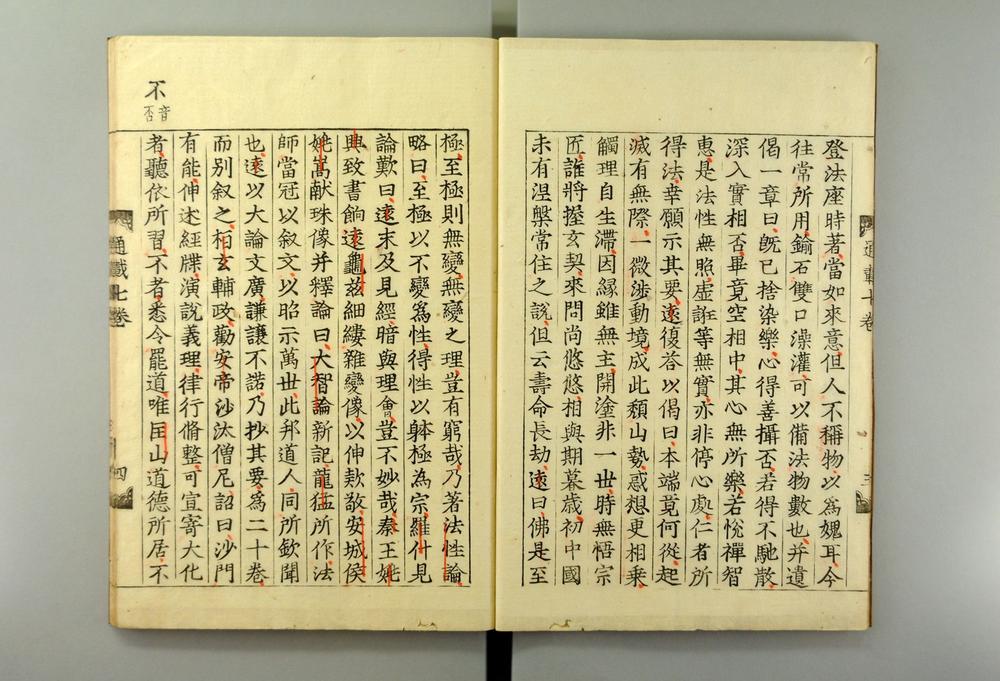 登法座時著當如來意但人不稱物以為媿耳今
往常所用鍮石雙口澡灌可以備法物數也并遺
偈一章曰既已捨染樂心得善攝否若得不馳散
深入實相否畢竟空相中其心無所樂若悅禪智
惠是法性無照虛誑等無實亦非停心處仁者所
得法幸願示其要遠復荅以偈曰本端竟何從起
滅有無際一微涉動境成此頹山勢惑想更相乗
觸理自生滯因緣雖無主開塗非一世時無悟宗
匠誰將握玄契來問尚悠悠相與期暮歲初中國
未有涅槃常住之說但云壽命長劫遠曰佛是至
通載七卷
三
極至極則無變無變之理豈有窮哉乃著法性論
略曰至極以不變爲性得性以躰極為宗羅什見
論歎曰遠未及見經暗與理會豈不妙哉秦王姚
興致書餉遠龜茲細縷雜變像以伸欵敬安城侯
姚嵩献珠像并釋論曰大智論新記龍猛所作法
師當冠以叙文以昭示萬世此邦道人同所欽聞
也遠以大論文廣謙讓不諾乃抄其要爲二十卷
而别叙之桓玄輔政勸安帝沙汰僧尼詔曰沙門
有能伸述經牒演說義理律行脩整可宜寄大化
者聽依所習不者悉令罷道唯匡山道德所居不
不
音否
通載七卷
四